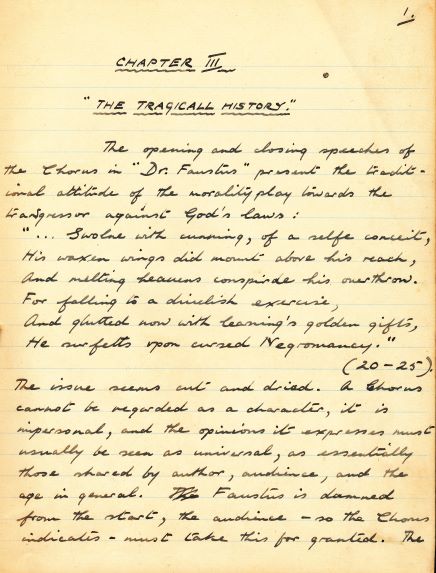 1.
CHAPTER III
"THE TRAGICALL HISTORY."
The opening and closing speeches of
the Chorus in "Dr. Faustus" present the tradit-
ional attitude of the morality play towards the
transgressor against God's laws:
"... Swolne with cunning, of a selfe conceit,
His waxen wings did mount above his reach,
And melting heavens conspirde his overthrow.
For falling to a divelish exercise,
And glutted now with learning's golden gifts,
He surfetts upon cursed Negromancy."
(20-25).
The issue seems cut and dried. A Chorus
cannot be regarded as a character, it is
impersonal, and the opinions it expresses must
usually be seen as universal, as essentially
those shared by author, audience, and the
age in general. The Faustus is damned
from the start, the audience - so the Chorus
indicates - must take this for granted. The